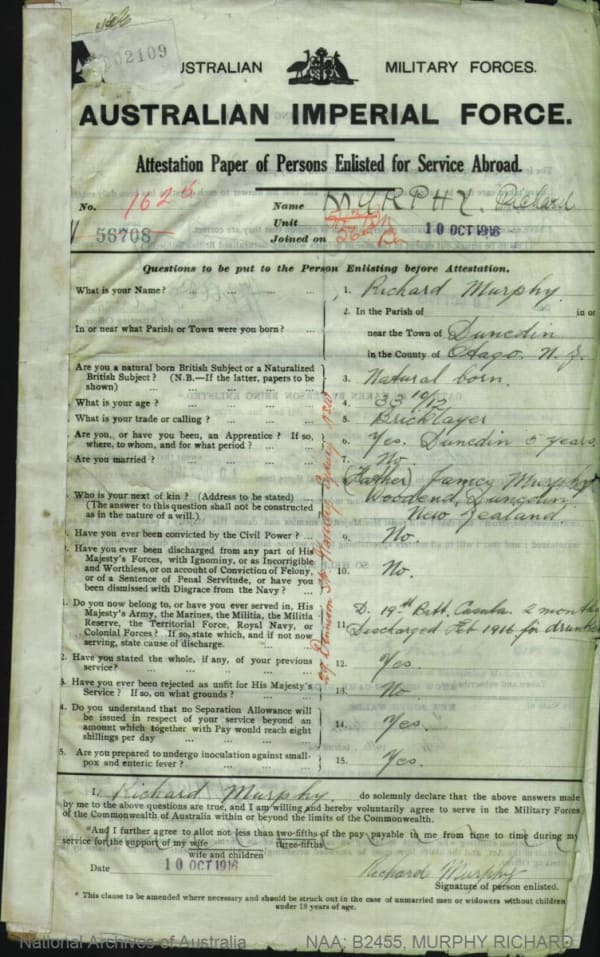 002109
AUSTRALIAN MILITARY FORCES.
AUSTRALIAN IMPERIAL FORCE.
Attestation Paper of Persons Enlisted for Service Abroad.
No. 162 Name MURPHY, Richard
56708 Unit 56th Bn
Joined on 10 OCT 1916
Questions to be put to the Person Enlisting before Attestation.
What is your Name? ... ... ... ... 1. Richard Murphy.
In or near what Parish or Town were you born? ... 2. In the Parish of in or
near the Town of Dunedin
in the County of Otago. N.Z.
Are you a natural born British Subject or a Naturalized
British Subject? (N.B.—If the latter, papers to be
shown) ... ... ... ... 3. Natural born.
What is your age? ... ... ... ... 4. 33 10/12
What is your trade or calling? ... ... ... 5. Bricklayer
Are you, or have you been, an Apprentice? If so,
where, to whom, and for what period? ... ... 6. Yes. Dunedin 5 years.
Are you married? ... ... ... ... 7. No
Who is your next of kin? (Address to be stated) ...
(The answer to this question shall not be constructed
as in the nature of a will.)
(Father) James Murphy
Woodend, Dunedin
New Zealand.
Have you ever been convicted by the Civil Power? ... 9. No.
Have you ever been discharged from any part of His
Majesty's Forces, with Ignominy, or as Incorrigible
and Worthless, or on account of Conviction of Felony,
or of a Sentence of Penal Servitude, or have you
been dismissed with Disgrace from the Navy? ... 10. No.
1. Do you now belong to, or have you ever served in, His
Majesty's Army, the Marines, the Militia, the Militia
Reserve, the Territorial Force, Royal Navy, or
Colonial Forces? If so, state which, and if not now
serving, state cause of discharge.
11. D. 19th Batt. Casula. 2 months
Discharged Feb 1916 for
2. Have you stated the whole, if any, of your previous
service? ... ... ... ... 12. Yes.
3. Have you ever been rejected as unfit for His Majesty's
Service? If so, on what grounds? ... ... 13. No
4. Do you understand that no Separation Allowance will
be issued in respect of your service beyond an
amount which together with Pay would reach eight
shillings per day ... ... ... 14. Yes.
5. Are you prepared to undergo inoculation against small-
pox and enteric fever? ... ... ... 15. Yes.
I, Richard Murphy. do solemnly declare that the above answers made
by me to the above questions are true, and I am willing and hereby voluntarily agree to serve in the Military Forces
of the Commonwealth of Australia within or beyond the limits of the Commonwealth.
*And I further agree to allot not less than two-fifths of the pay payable to me from time to time during my
service for the support of my wife three-fifths
wife and children
Date 10 OCT 1916 Richard Murphy
Signature of person enlisted.
* This clause to be amended where necessary and should be struck out in the case of unmarried men or widowers without children
under 18 years of age.
National Archives of Australia NAA: B2455, MURPHY RICHARD